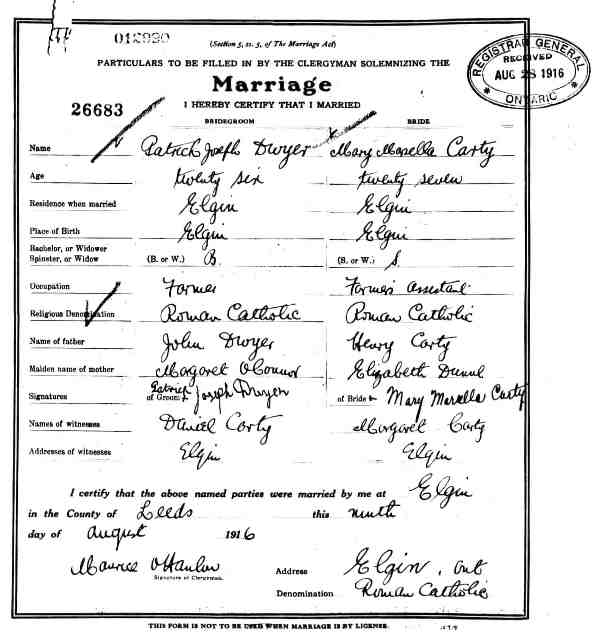 012920
(Section 5, ss. 5, of The Marriage Act)
PARTICULARS TO BE FILLED IN BY THE CLERGYMAN SOLEMNIZING THE
Marriage
REGISTRAR GENERAL
RECEIVED
AUG 28 1916
ONTARIO
26683
I HEREBY CERTIFY THAT I MARRIED
BRIDEGROOM BRIDE
Name Patrick Joseph Dwyer Mary Marella Carty
Age twenty six twenty seven
Residence when married Elgin Elgin
Place of Birth Elgin Elgin
Bachelor, or Widower
Spinster, or Widow (B. or W.) B. (S. or W.) S.
Occupation Farmer Farmer's assistant
Religious Denomination Roman Catholic Roman Catholic
Name of father John Dwyer Henry Carty
Maiden name of mother Margaret O'Connor Elizabeth
Signatures of Groom Patrick Joseph Dwyer of Bride Mary Marella Carty
Names of witnesses Daniel Carty Margaret Carty
Addresses of witnesses Elgin Elgin
I certify that the above named parties were married by me at Elgin
in the County of Leeds this ninth
day of August 1916
Maurice O'Hanlon Address Elgin, Ont
Signature of Clergyman.
Denomination Roman Catholic
THIS FORM IS NOT TO BE USED WHEN MARRIAGE IS BY LICENSE.